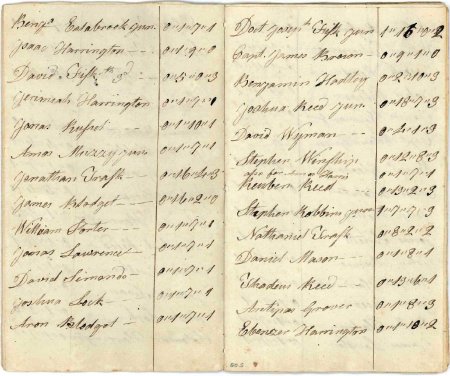 Benjn Estabrook Jun. 0"1"7"1
Isaac Harrington 0"1"9"0
David Fisk 3d 0"5"0"3
Jeremiah Harrington 0"1"7"1
Jonas 0"1"10"1
Amos Muzzy Jun 0"1"7"1
Jonathan Trask 0"16"4"3
James Blodget 0"16"2"0
William Porter 0"1"7"1
Jonas Lawrence 0"1"7"1
David Simonds 0"1"7"1
Joshua Lock 0"1"7"1
Aron Blodget 0"1"7"1
Doct Joseph Fisk Jun 1"16"0"2
Capt. James Brown 0"9"1"0
Benjamin Hadley 0"2"10"3
Joshua Reed Jun 0"18"7"3
David Wyman 0"4"1"3
Stephen Winship 0"12"8"3
0"1"7"1
Reuben Reed 0"13"2"3
Stephen Robbins Jun 1"7"7"3
Nathaniel Trask 0"8"2"2
Daniel Mason 0"1"8"1
Thadeus Reed 0"13"6"1
Antipas Grover 0"1"8"3
Ebenezer Harrington 0"1"18"2
505